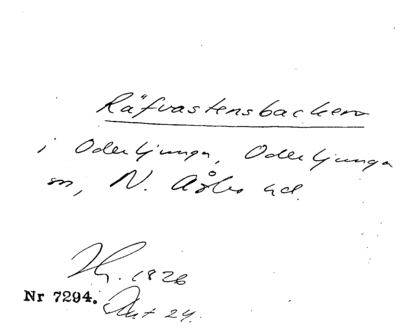 Räfvastensbacken
i Oderljunga, Oderljunga
sn, N. Åsbo hd.
Th. 1826
Nr 7294. Akt 24.